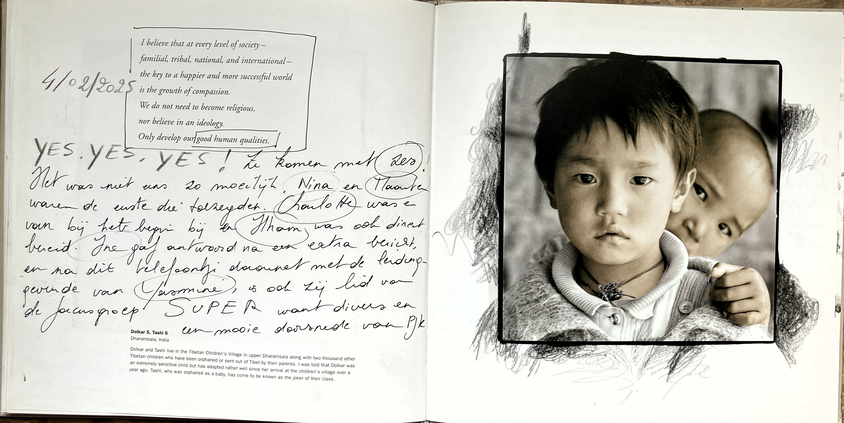 I believe that at every level of society –
familial, tribal, national, and international –
the key to a happier and more successful world
is the growth of compassion.
We do not need to become religious,
nor believe in an ideology.
Only develop our good human qualities.
4/02/2025
YES. YES. YES! Ze komen met zes!
Het was niet eens zo moeilijk, Nina en Maarten
waren de eerste die toezegden. Charlotte was er
van bij het begin bij en Ilham was ook direct
bereid. Ine gaf antwoord na een extra bericht,
en na dit telefoontje daarnet met de leiding-
gevende van Yasmine, is ook zij lid van
de focusgroep SUPER want divers en
een mooie doorsnede van
Dolkar S, Tashi 6
Dharamsala, India
Dolkar and Tashi live in the Tibetan Children's Village in upper Dharamsala along with two thousand other
Tibetan children who have been orphaned or sent out of Tibet by their parents. I was told that Dolkar was
an extremely sensitive child but has adapted rather well since her arrival at the children's village over a
year ago. Tashi, who was orphaned as a baby, has come to be known as the joker of their class.